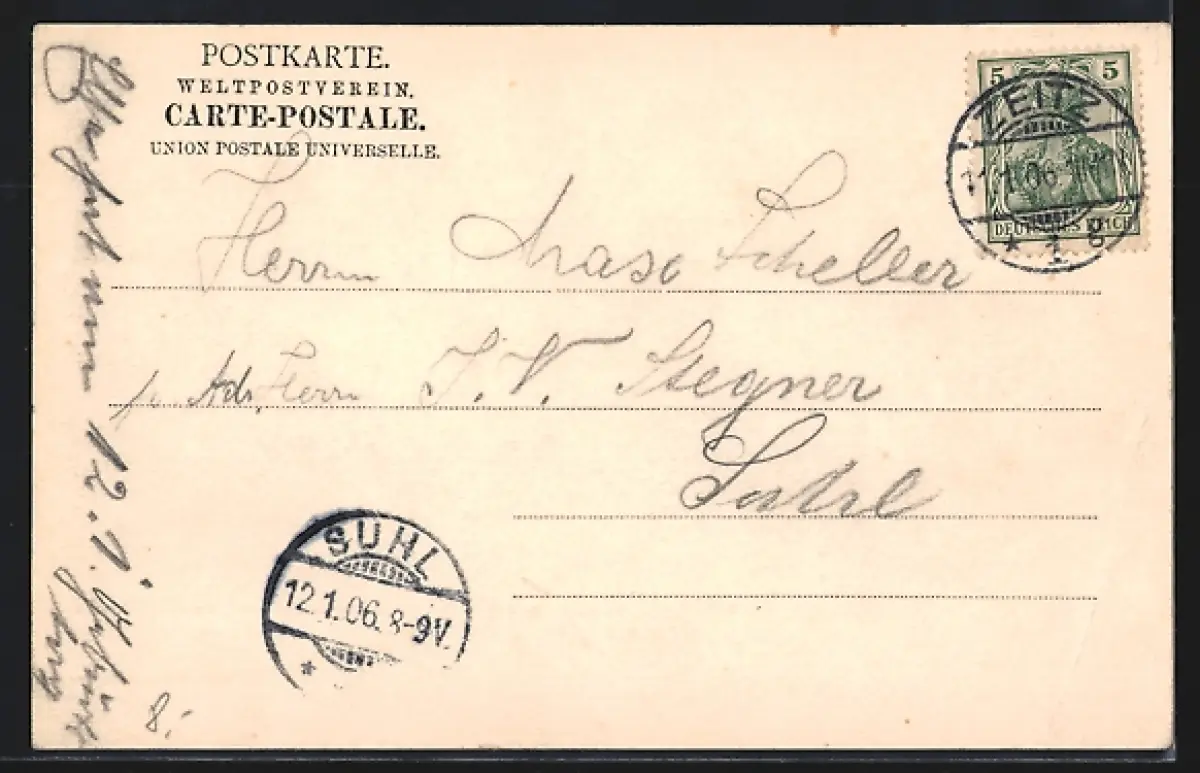 POSTKARTE.
WELTPOSTVEREIN.
CARTE-POSTALE.
UNION POSTALE UNIVERSELLE.
5 5
DEUTSCHES REICH
ZEITZ
1.06
* 1 g
Herrn Max Scheller
p. Adr. Herrn J. V. Stegner
Suhl
SUHL
12.1.06. 8-9V.
*
12.1.
8.-